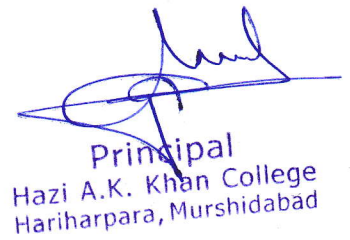 Principal
Hazi A.K. Khan College
Hariharpara, Murshidabad